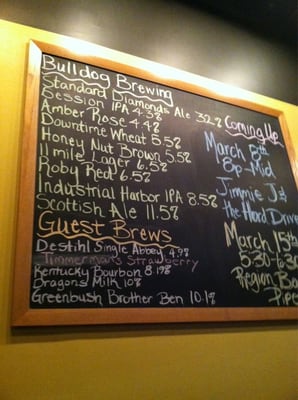 Bulldog Brewing
Standard Diamonds Ale 3.2%
Session IPA 4.3%
Amber Rose 4.4%
Downtime Wheat 5.5%
Honey Nut Brown 5.5%
11 mile Lager 6.5%
Roby Red 6.5%
Industrial Harbor IPA 8.5%
Scottish Ale 11.5%
Guest Brews
Destihl Single Abbey 4.9%
Timmermans Strawberry
Kentucky Bourbon 8.19%
Dragons Milk 10%
Greenbush Brother Ben 10.1%
Coming Up
March 8th
8p-Mid
Jimmie J's &
the Hard Drive
March 15th
5:30-6:30
Region
Pipe